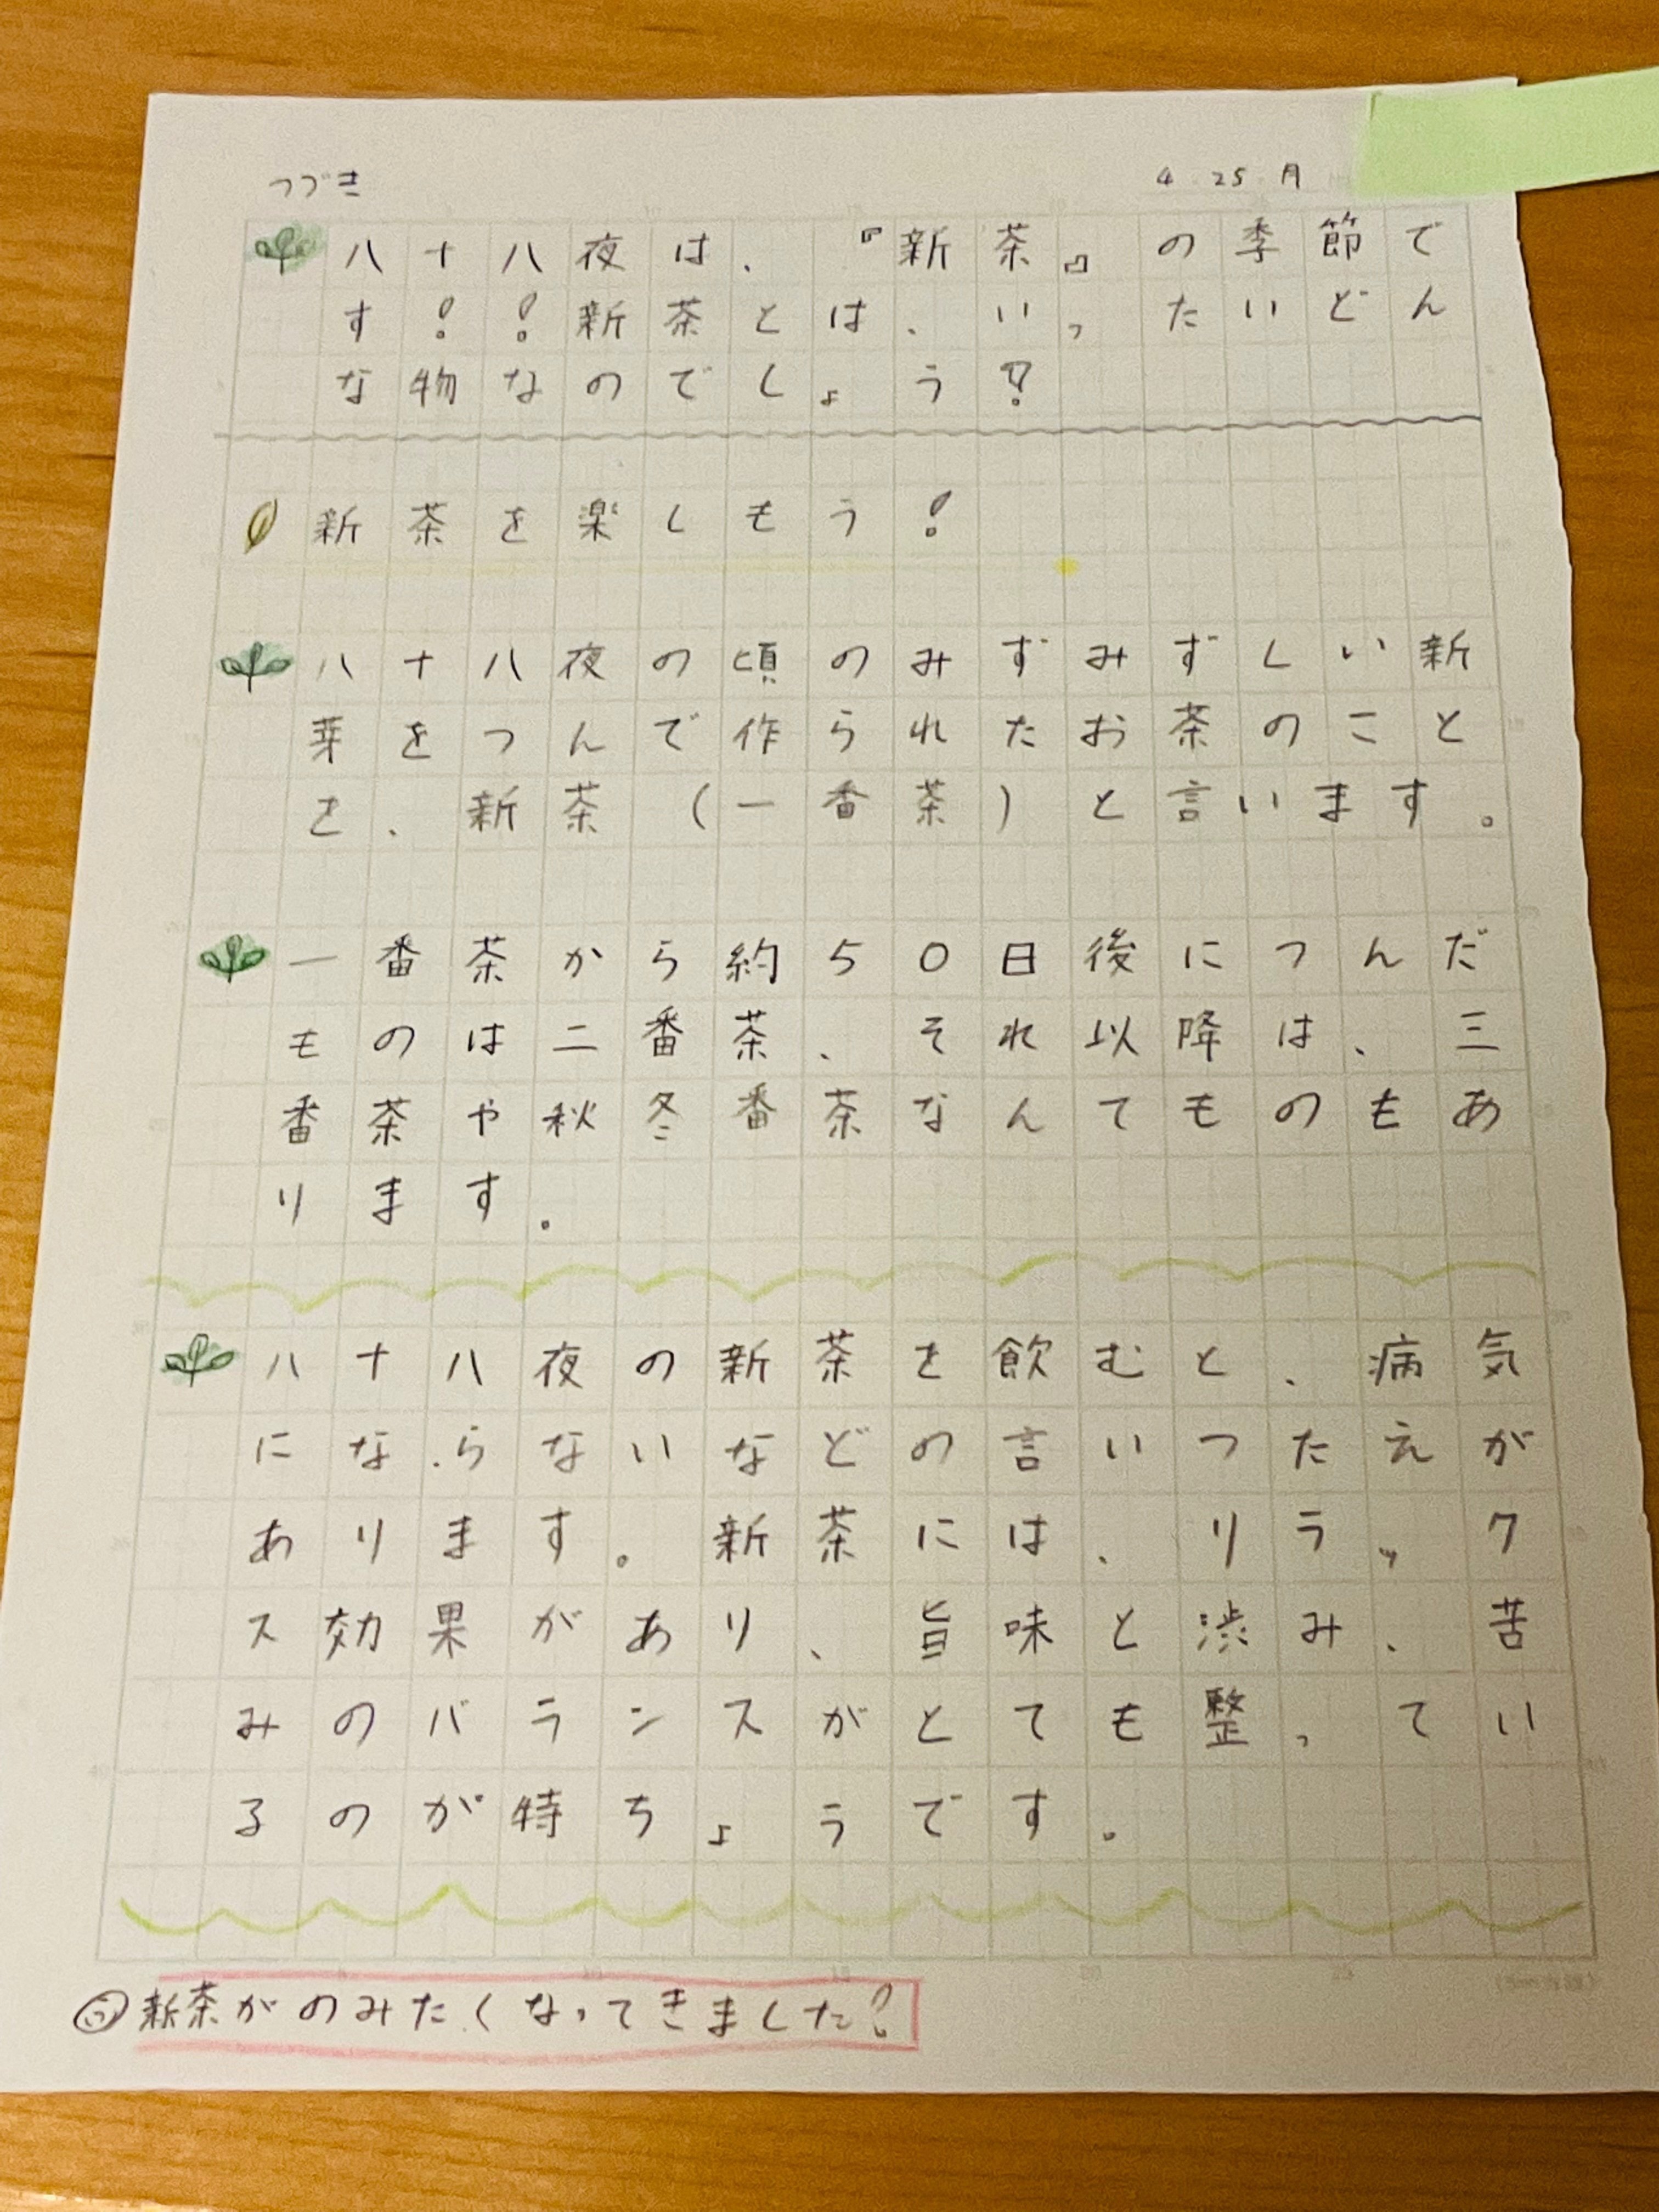 つづき
4 25 月
八十八夜は、『新茶』の季節で
す!!新茶とは、いったいどん
な物なのでしょう?
新茶を楽しもう!
八十八夜の頃のみずみずしい新
芽をつんで作られたお茶のこと
を、新茶(一番茶)と言います。
一番茶から約50日後につんだ
ものは二番茶、それ以降は、三
番茶や秋冬番茶なんてものもあ
ります。
八十八夜の新茶を飲むと、病気
にならないなどの言いつたえが
あります。新茶には、リラック
ス効果があり、旨味と渋み、苦
みのバランスがとても整ってい
るのが特ちょうです。
新茶がのみたくなってきました!